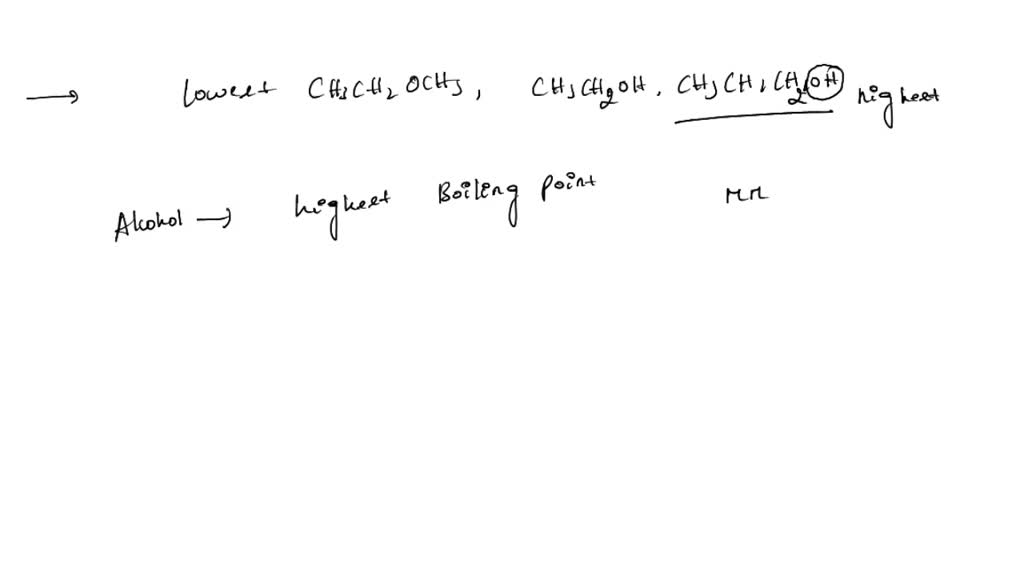 → lowest CH3CH2OCH3, CH3CH2OH, CH3CH2CH2OH highest
Alcohol → highest Boiling point